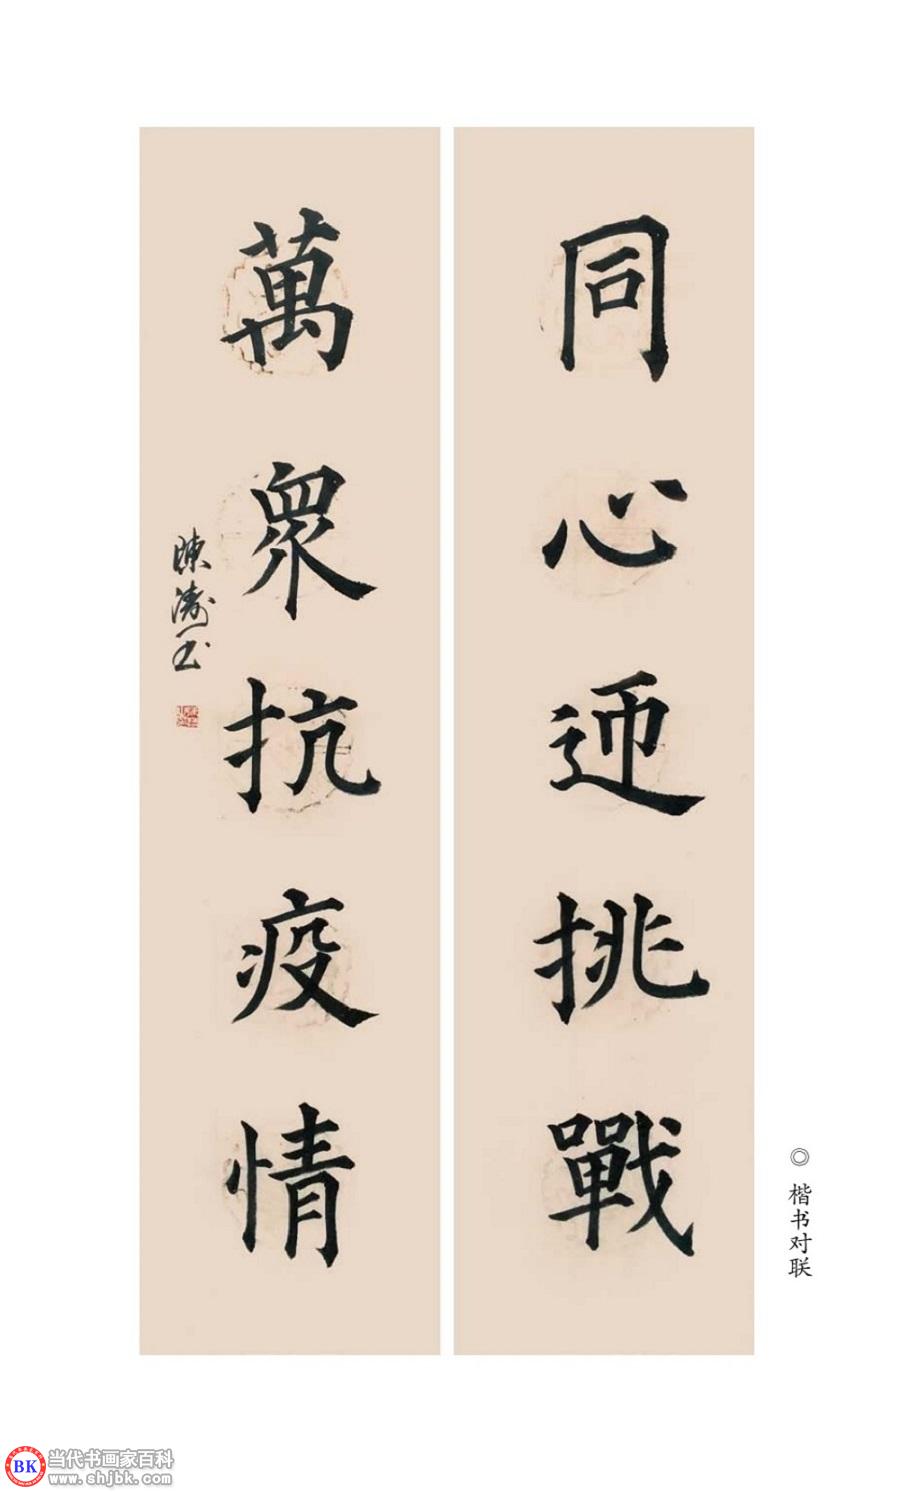 同心迊挑戰
萬衆抗疫情
陳濤玉
◎ 楷书对联
BK 当代书画家百科
www.shjbk.com